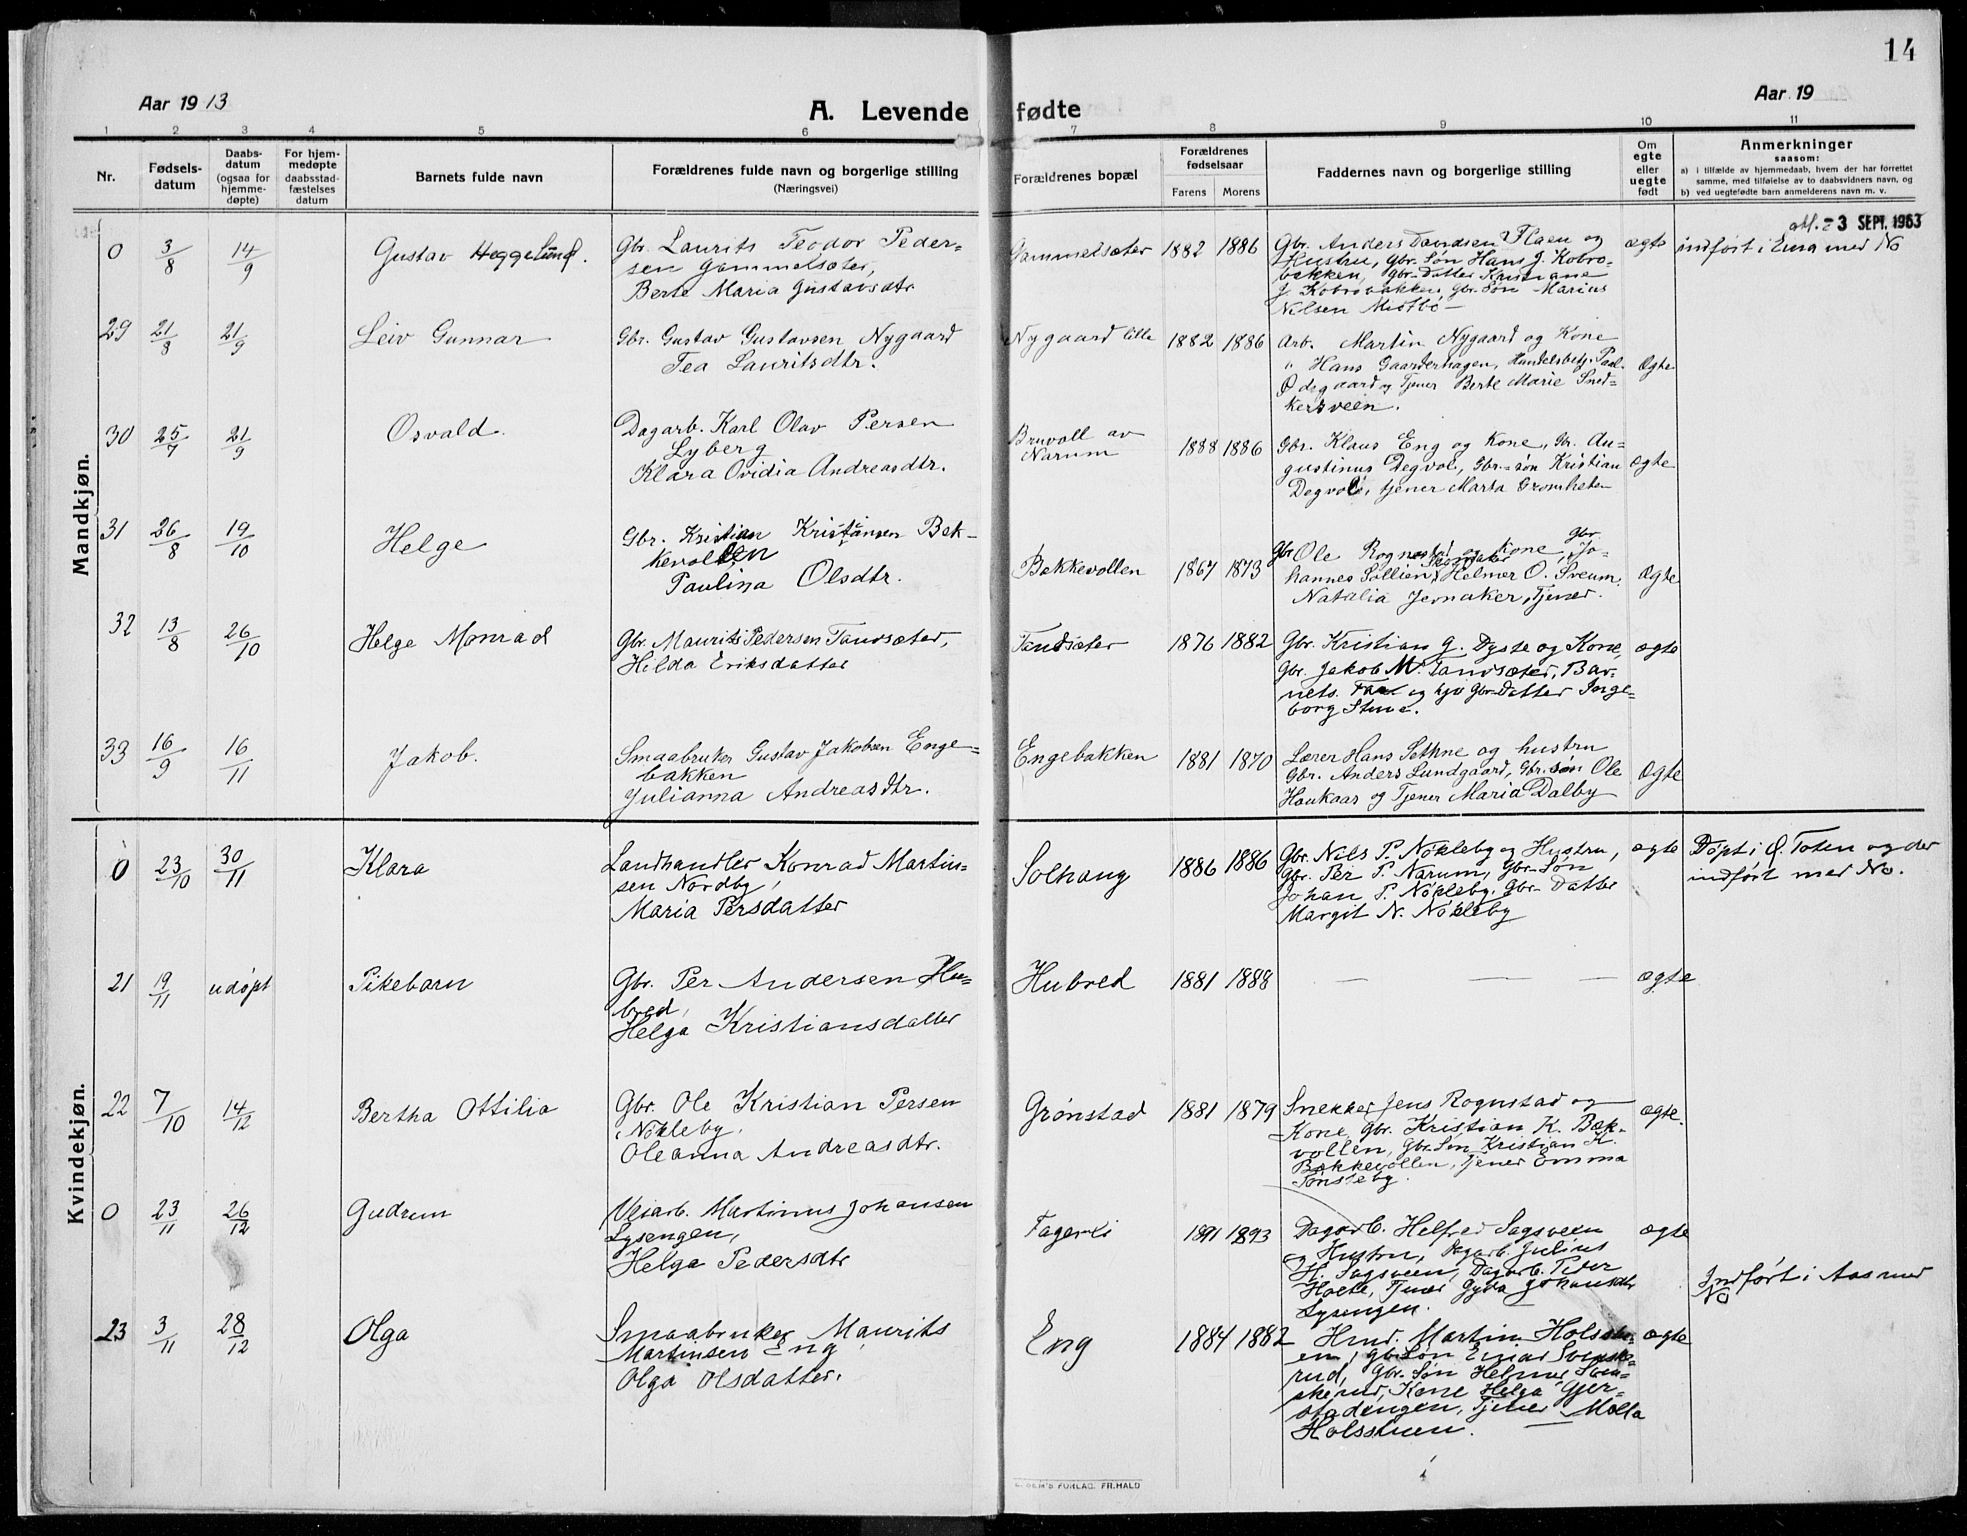 14
Aar 1913
A. Levende
fødte
Aar 19
1 2 3 4 5 6 7 8 9 10 11
Nr.
Fødsels-
datum
Daabs-
datum
(ogsaa for
hjemme-
døpte)
For hjem-
medøpte
daabsstad-
fæstelses
datum
Barnets fulde navn
Forældrenes fulde navn og borgerlige stilling
(Næringsvei)
Forældrenes bopæl
Forældrenes
fødselsaar
Farens Morens
Faddernes navn og borgerlige stilling
Om
egte
eller
uegte
født
Anmerkninger
saasom:
a) i tilfælde av hjemmedaab, hvem der har forrettet
samme, med tilføielse av to daabsvidners navn, og
b) ved uegtefødte barn anmelderens navn m. v.
Mandkjøn.
0 3/8 14/9 Gustav Heggelund.
Gbr. Laurits Teodor Peder-
sen Gammelsæter,
Berte Maria Gustavsdtr
Gammelsæter 1882 1886
Gbr. Anders Davidsen Flaen og
Hustru, Gbr. Søn Hans J. Kobro-
bakken, Gbr. Datter Kristiane
J. Kobrobakken, Gbr. Søn Marius
Nilsen
ægte
Att. 23 SEPT. 1963
indført i Eina med No
29 21/8 21/9 Leiv Gunnar
Gbr. Gustav Gustavsen Nygaard
Tea Lauritsdtr.
Nygaard lille 1882 1886
Arb. Martin Nygaard og Kone
" Hans Gaarderhagen, Handelsbetj. Paul
Ødegaard og Tjener Berte Marie Sned-
kersveen.
Ægte
30 25/7 21/9 Osvald.
Dagarb. Karl Olav Persen
Lyberg
Klara Ovidia Andreasdtr.
Bruvoll av
Narum
1888 1886
Gbr. Klaus Eng og Kone, Gbr. Au-
gustinus Degvol, Gbr.-søn Kristian
Degvold, tjener Marta Gromheten
Ægte
31 26/8 19/10 Helge
Gbr. Kristian Kristiansen Bek-
kevollen
Paulina Olsdtr.
Bækkevollen 1867 1873
Gbr. Ole Rognstad og Kone, Gbr. Jo-
hannes Sollien, Helmer O. Sveum.
Natalia Jernaker, Tjener.
Ægte
32 13/8 26/10 Helge Monrad
Gbr. Maurits Pedersen Tandsæter,
Hilda Eriksdatter
Tandsæter 1876 1882
Gbr. Kristian G. Dyste og Kone,
Gbr. Jakob M. Tandsæter, Bar-
nets Far og Gbr. Datter Inge-
borg Stuve.
ægte
33 16/9 16/11 Jakob.
Smaabruker Gustav Jakobsen Enge-
bakken
Julianna Andreasdtr.
Engebakken 1881 1870
Lærer Hans Sethne og hustru
Gbr. Anders Lundgaard, Gbr. søn Ole
Haukaas og Tjener Maria Dalby
Ægte
Kvindekjøn.
0 23/10 30/11 Klara
Landhandler Konrad Martin-
sen Nordby,
Maria Persdatter
Solhaug 1886 1886
Gbr. Nils P. Nøkleby og Hustru,
Gbr. Per P. Narum, Gbr. Søn
Johan P. Nøkleby, Gbr. Datter
Margit N. Nøkleby
ægte
Døpt i Ø. Toten og der
indført med No.
21 19/11 udøpt Pikebarn
Gbr. Per Andersen Hu-
bred,
Helga Kristiansdatter
Hubred 1881 1888 — — — ægte
22 7/10 14/12 Bertha Ottilia
Gbr. Ole Kristian Persen
Nøkleby.
Oleanna Andreasdtr.
Grønstad 1881 1879
Snekker Jens Rognstad og
Kone, Gbr. Kristian K. Bæk-
vollen, Gbr. Søn Kristian K.
Bækkevollen, Tjener Emma
Tønseby.
ægte.
0 23/11 26/12 Gudrun
Veiarb. Martinus Johansen
Lysengen,
Helga Pedersdtr
Fagerli 1891 1893
Dagarb. Helfred Sagsveen
og Hustru, Dagarb. Julius
H. Sagsveen, Dagarb. Peder
Holte, Tjener Gyda Johansdtr
Lysengen.
ægte
Indført i Aas med
No
23 3/11 28/12 Olga
Smaabruker Maurits
Martinsen Eng,
Olga Olsdatter.
Eng 1884 1882
Hmd. Martin Holsstu-
en, Gbr. Søn Einar Svenske-
rud, Gbr. Søn Helmer Sven-
skerud, Kone Helga Gjer-
stadengen, Tjener Molla
Holsstuen.
ægte
FORLAG. FR. HALD